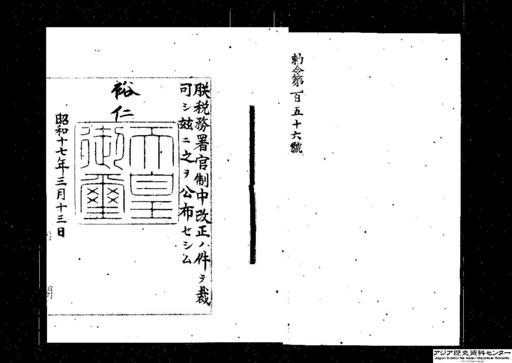 勅令第一百五十六號
朕税務署官制中改正ノ件ヲ裁
可シ玆ニ之ヲ公布セシム
裕仁
天皇
御璽
昭和十七年三月十三日
アジア歴史資料センター
Japan Center for Asian Historical Records